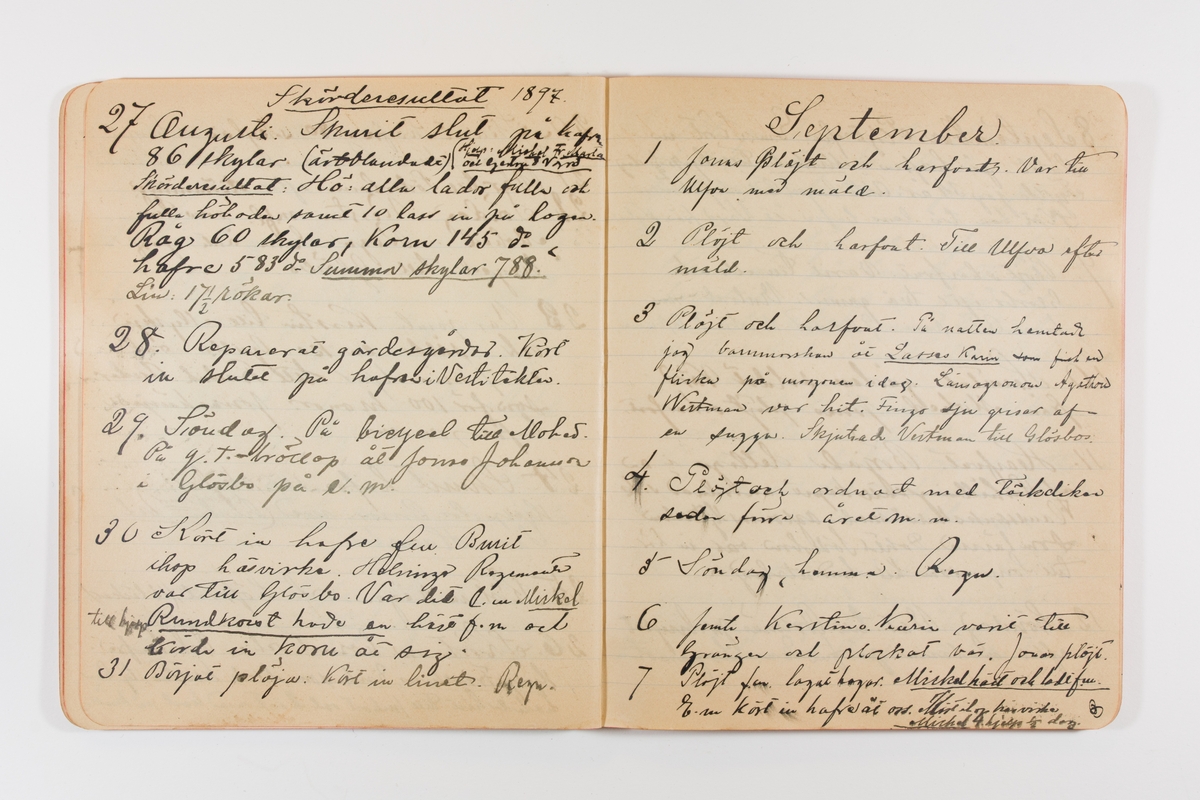 Skörderesultat 1897.
27 Augusti. Skurit slut på hafre
86 skylar (ärtblandade)
Skörderesultat: Hö: alla lador fulla och
fulla höboden samt 10 lass in på logen.
Råg 60 skylar, Korn 145 do
hafre 583 do Summa skylar 788.
Lin: 17 1/2 rökar.
28. Reparerat gärdesgårdar. Kört
in slutet på hafren i
29. Söndag. På bicycel till Mohed.
På g.t. bröllop åt Jonas Johansson
i Glösbo på e.m.
30 Kört in hafre fm. Burit
ihop häsvirke. Helsinge Regemente
var till Glösbo. Var dit e.m Mickel
Rundkvist hade en häst f.m och
till hjelp
körde in korn åt sig.
31 Börjat plöja. Kört in linet. Regn.
September.
1 Jonas Plöjt och harfvat. Var till
Ulfva med mäld.
2 Plöjt och harfvat. Till Ulfva efter
mäld.
3 Plöjt och harfvat. På natten hemtade
jag barnmorskan åt Lasses Karin som fick en
flicka på morgonen idag. Länsagronom
Westman var hit. Fingo sju grisar af
en sugga. Skjutsade Vestman till Glösbo.
4. Plöjt och ordnat med täckdiken
sedan förra året m. m.
5 Söndag, hemma. Regn.
6 Jemte Kerstin o. Karin varit till
Gränger och plockat bär. Jonas plöjt.
7 Plöjt fm. lagat vägar. Mickel häst och ladt fm.
E.m Kört in hafre åt oss. häsvirke
Mickel t. hjelp dag.